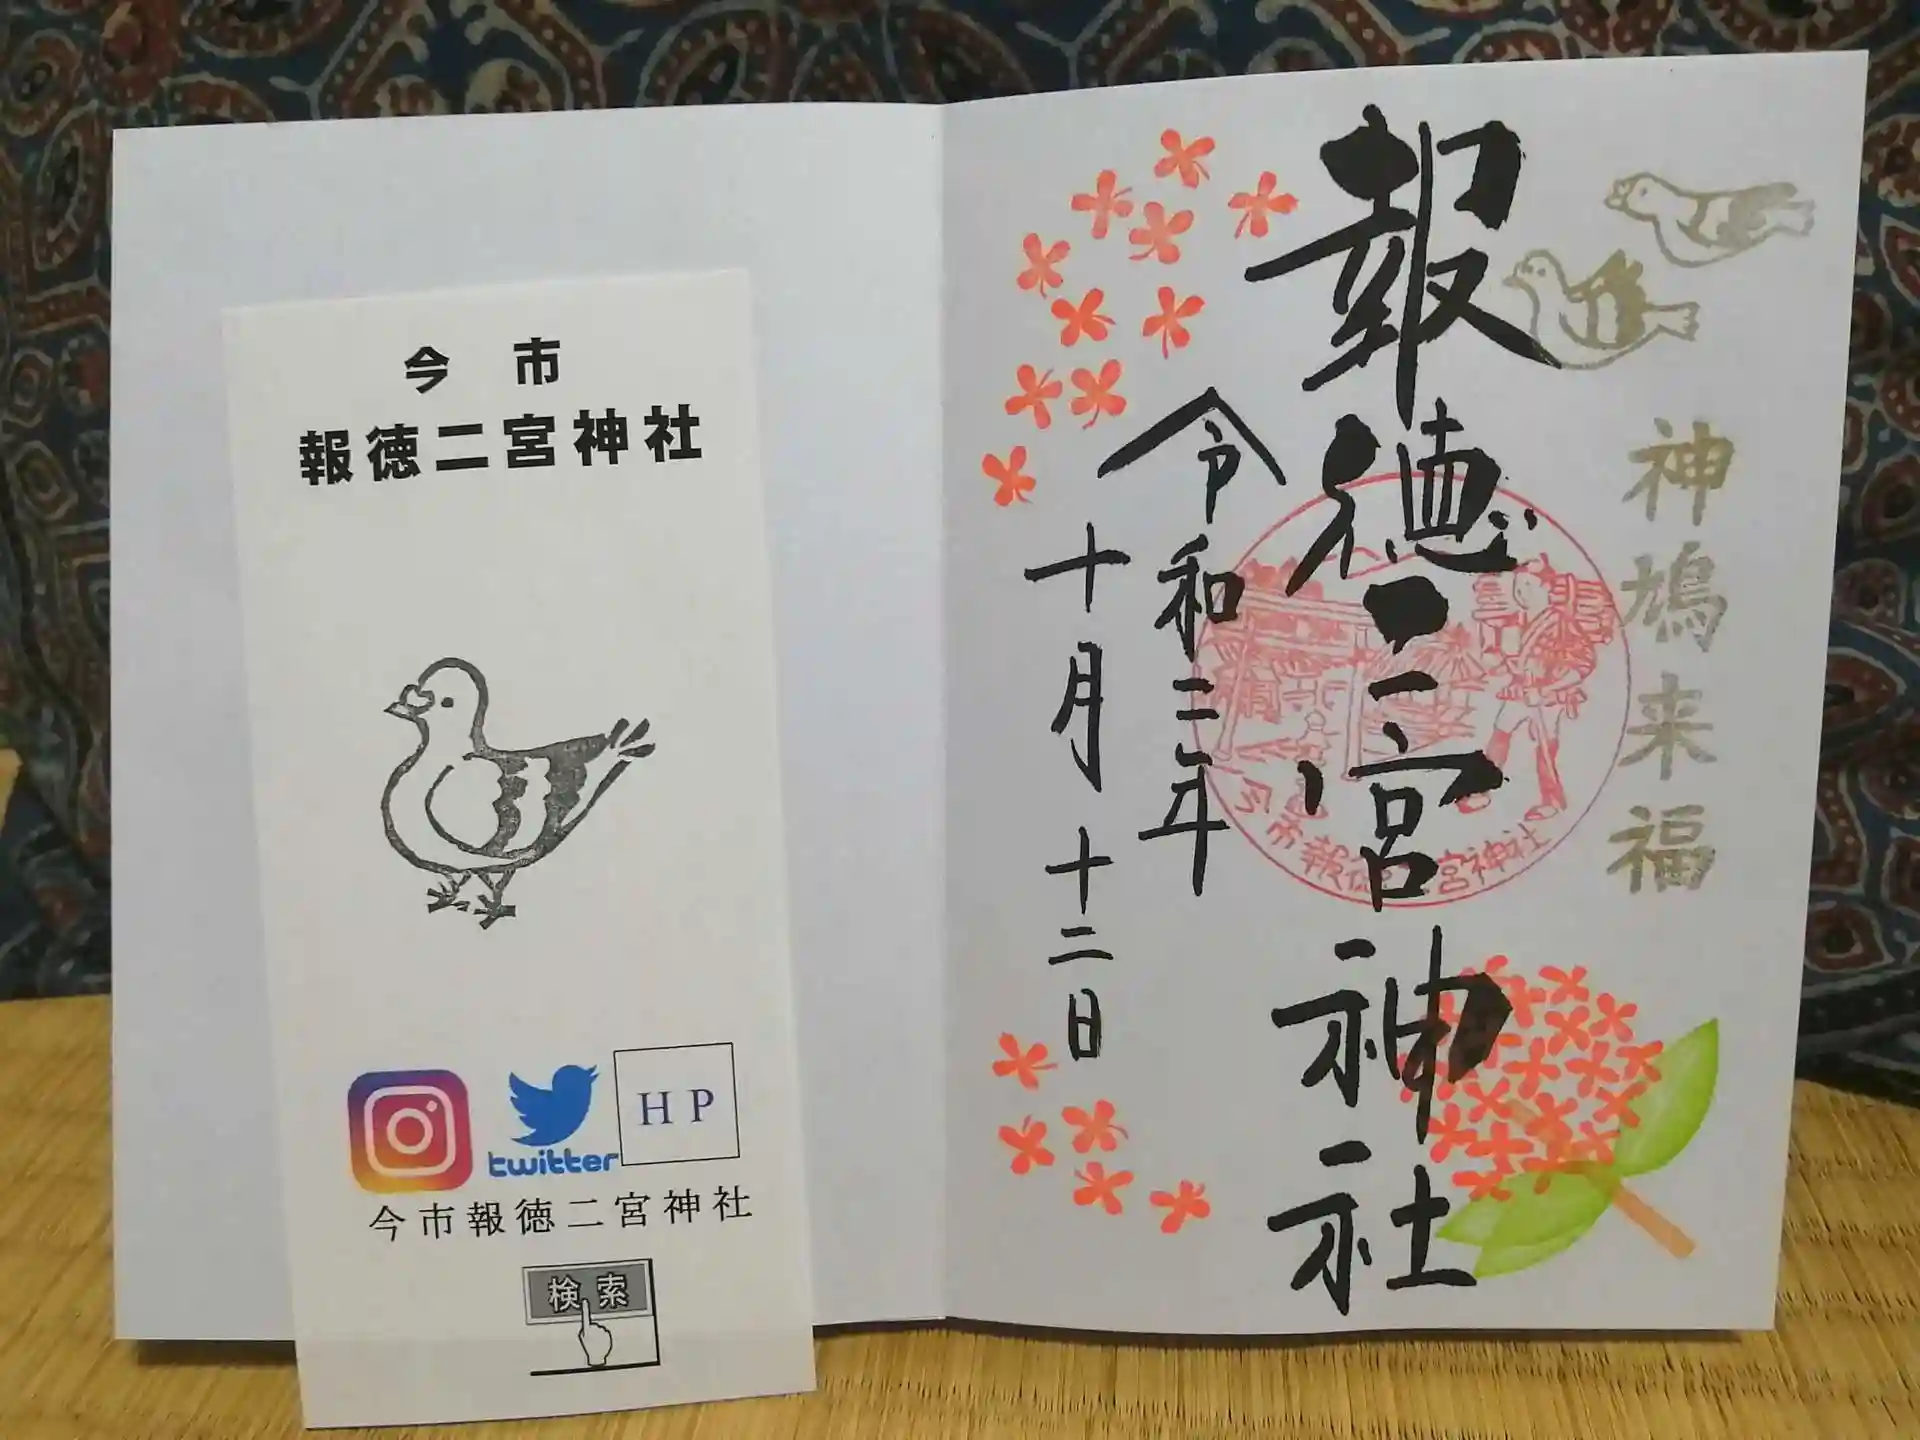 今市
報徳二宮神社
twitter
HP
今市報徳二宮神社
検索
神鳩来福
報徳二宮神社
今市報徳二宮神社
令和三年
十月十二日